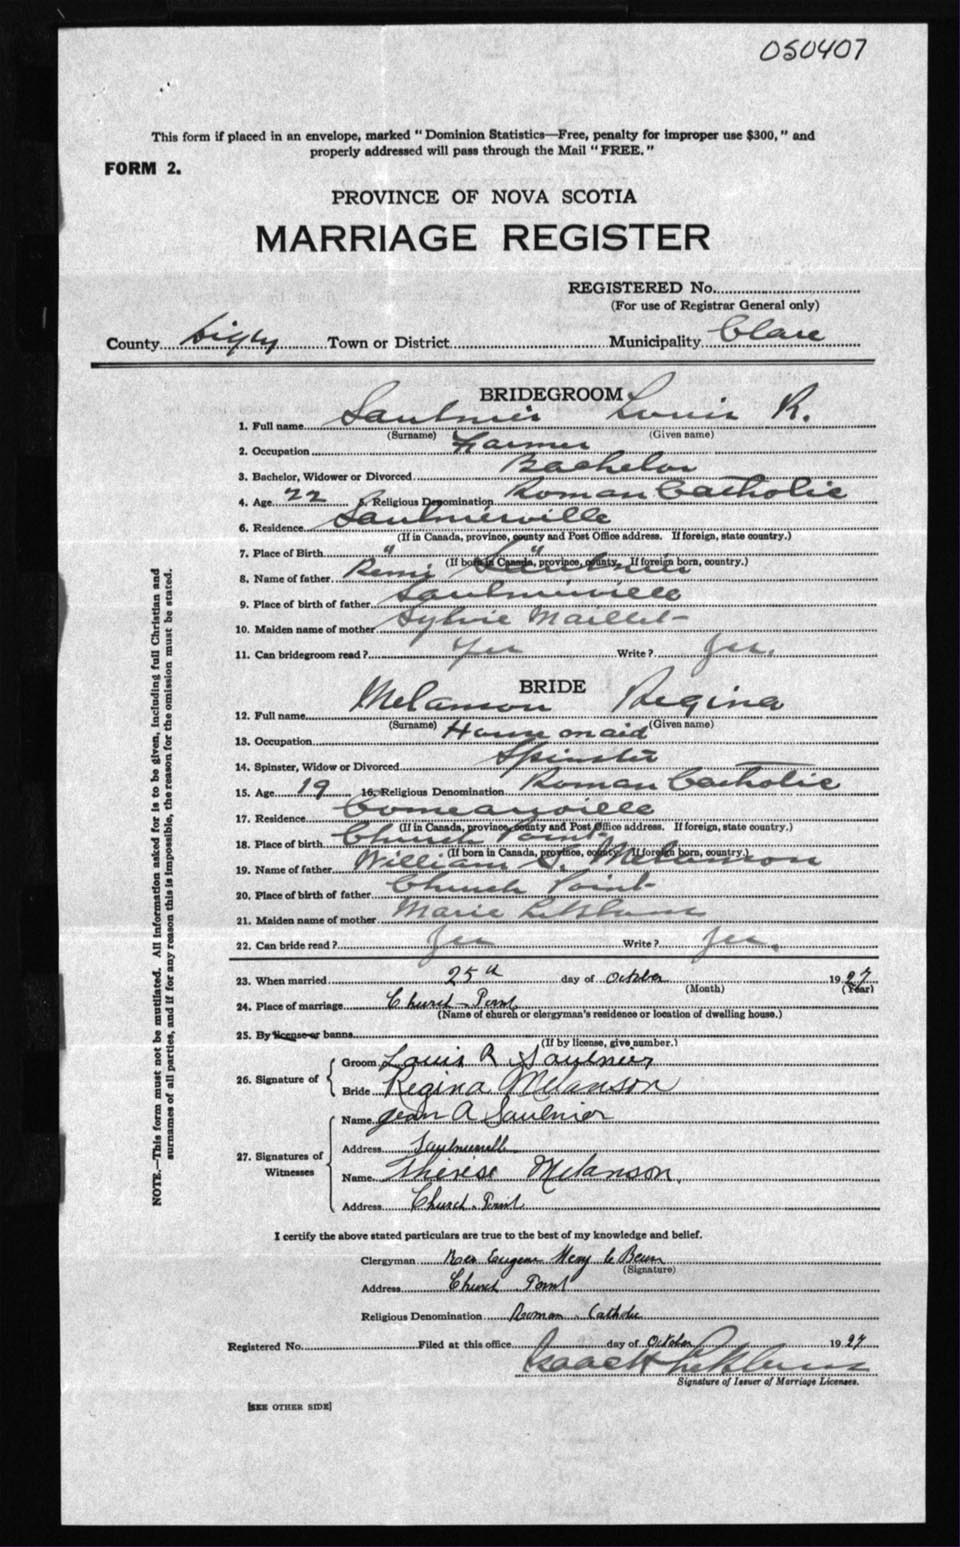 050407
This form if placed in an envelope, marked "Dominion Statistics—Free, penalty for improper use $300," and
properly addressed will pass through the Mail "FREE."
FORM 2.
PROVINCE OF NOVA SCOTIA
MARRIAGE REGISTER
REGISTERED No.
(For use of Registrar General only)
County Digby Town or District Municipality Clare
BRIDEGROOM
1. Full name Saulnier Louis R.
(Surname) (Given name)
2. Occupation Farmer
3. Bachelor, Widower or Divorced Bachelor
4. Age 22 5. Religious Denomination Roman Catholic
6. Residence Saulnierville
(If in Canada, province, county and Post Office address. If foreign, state country.)
7. Place of Birth " "
(If born in Canada, province, county. If foreign born, country.)
8. Name of father Remi Saulnier
9. Place of birth of father Saulnierville
10. Maiden name of mother Sylvie Maillet
11. Can bridegroom read? Yes Write? Yes.
BRIDE
12. Full name Melanson Regina
(Surname) (Given name)
13. Occupation House maid
14. Spinster, Widow or Divorced Spinster
15. Age 19 16. Religious Denomination Roman Catholic
17. Residence Comeauville
(If in Canada, province, county and Post Office address. If foreign, state country.)
18. Place of birth Church Point
(If born in Canada, province, county. If foreign born, country.)
19. Name of father William S. Melanson
20. Place of birth of father Church Point
21. Maiden name of mother Marie LeBlanc
22. Can bride read? Yes Write? Yes.
23. When married 25th day of October 1927
(Month) (Year)
24. Place of marriage Church Point
(Name of church or clergyman's residence or location of dwelling house.)
25. By license or banns
(If by license, give number.)
26. Signature of Groom Louis R Saulnier
Bride Regina Melanson
27. Signatures of Witnesses Name Jean A Saulnier
Address Saulnierville
Name Therese Melanson.
Address Church Point
I certify the above stated particulars are true to the best of my knowledge and belief.
Clergyman Rev Eugene
(Signature)
Address Church Point
Religious Denomination Roman Catholic
Registered No. Filed at this office day of October 1927
Isaac H LeBlanc
Signature of Issuer of Marriage Licenses.
[SEE OTHER SIDE]
NOTE.—This form must not be mutilated. All information asked for is to be given, including full Christian and
surnames of all parties, and if for any reason this is impossible, the reason for the omission must be stated.